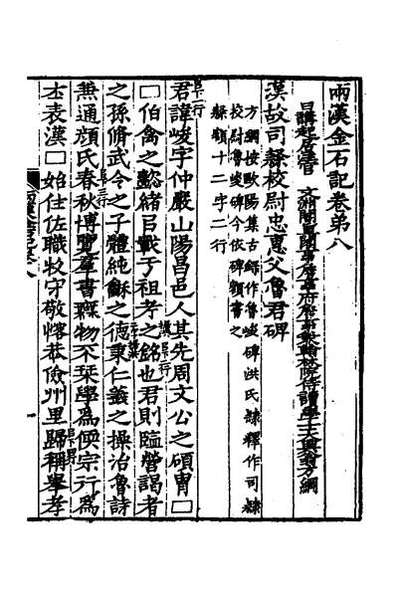 兩漢金石記卷第八
日講起居注官文淵閣直閣事詹事府詹事兼翰林院侍讀學士大興翁方綱
漢故司隸校尉忠惠父魯君碑
方綱按歐陽集古錄作魯峻碑洪氏隸釋作司隸
校尉魯峻碑今依碑額書之
隸額十二字二行
君諱峻字仲嚴山陽昌邑人其先周文公之碩胄□
□伯禽之懿緒㠯載于祖考之銘也君則監營謁者
之孫脩武令之子體純龢之德秉仁義之操治魯詩
兼通顏氏春秋博覽羣書無物不栞學為偄宗行為
士表漢□始仕佐職牧守敬恪恭儉州里歸稱舉孝